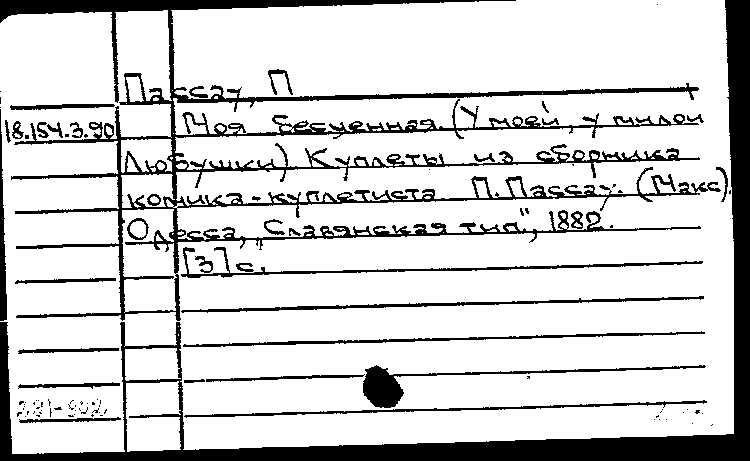 Пассау, П
18.154.3.90 Моя бесценная. (У моей, у милой
Любушки) Куплеты из сборника
комика-куплетиста П. Пассау. (Макс).
Одесса, „Славянская тип", 1882.
[3] с.
281-802